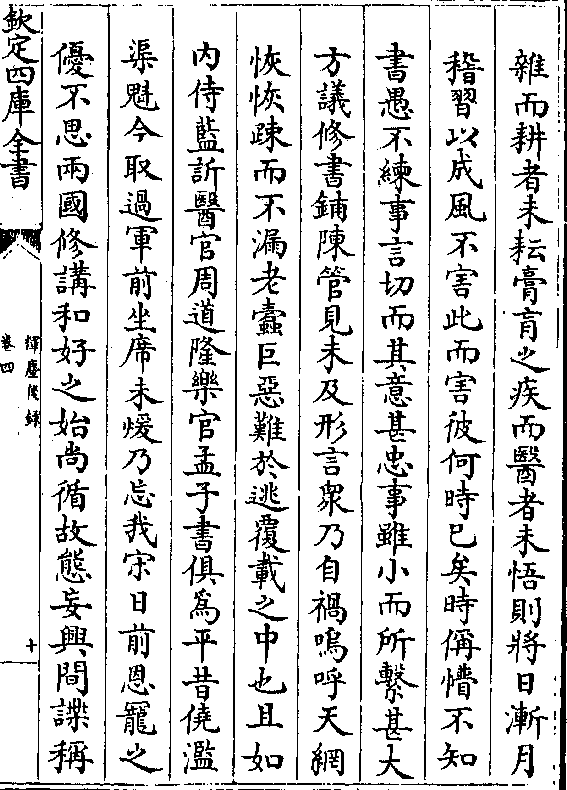 雜而耕者未耘膏肓之疾而醫者未悟則將日漸月
稽習以成風不害此而害彼何時已矣時偁懵不知
書愚不練事言切而其意甚忠事雖小而所繫甚大
方議修書鋪陳管見未及形言衆乃自禍嗚呼天網
恢恢踈而不漏老蠹巨惡難於逃覆載之中也且如
内侍藍訢醫官周道隆樂官孟子書俱為平昔僥濫
渠魁今取過軍前坐席未煖乃忘我宋日前恩寵之
優不思兩國修講和好之始尚循故態妄興間諜稱
欽定四庫全書
揮麈後錄
卷四
十